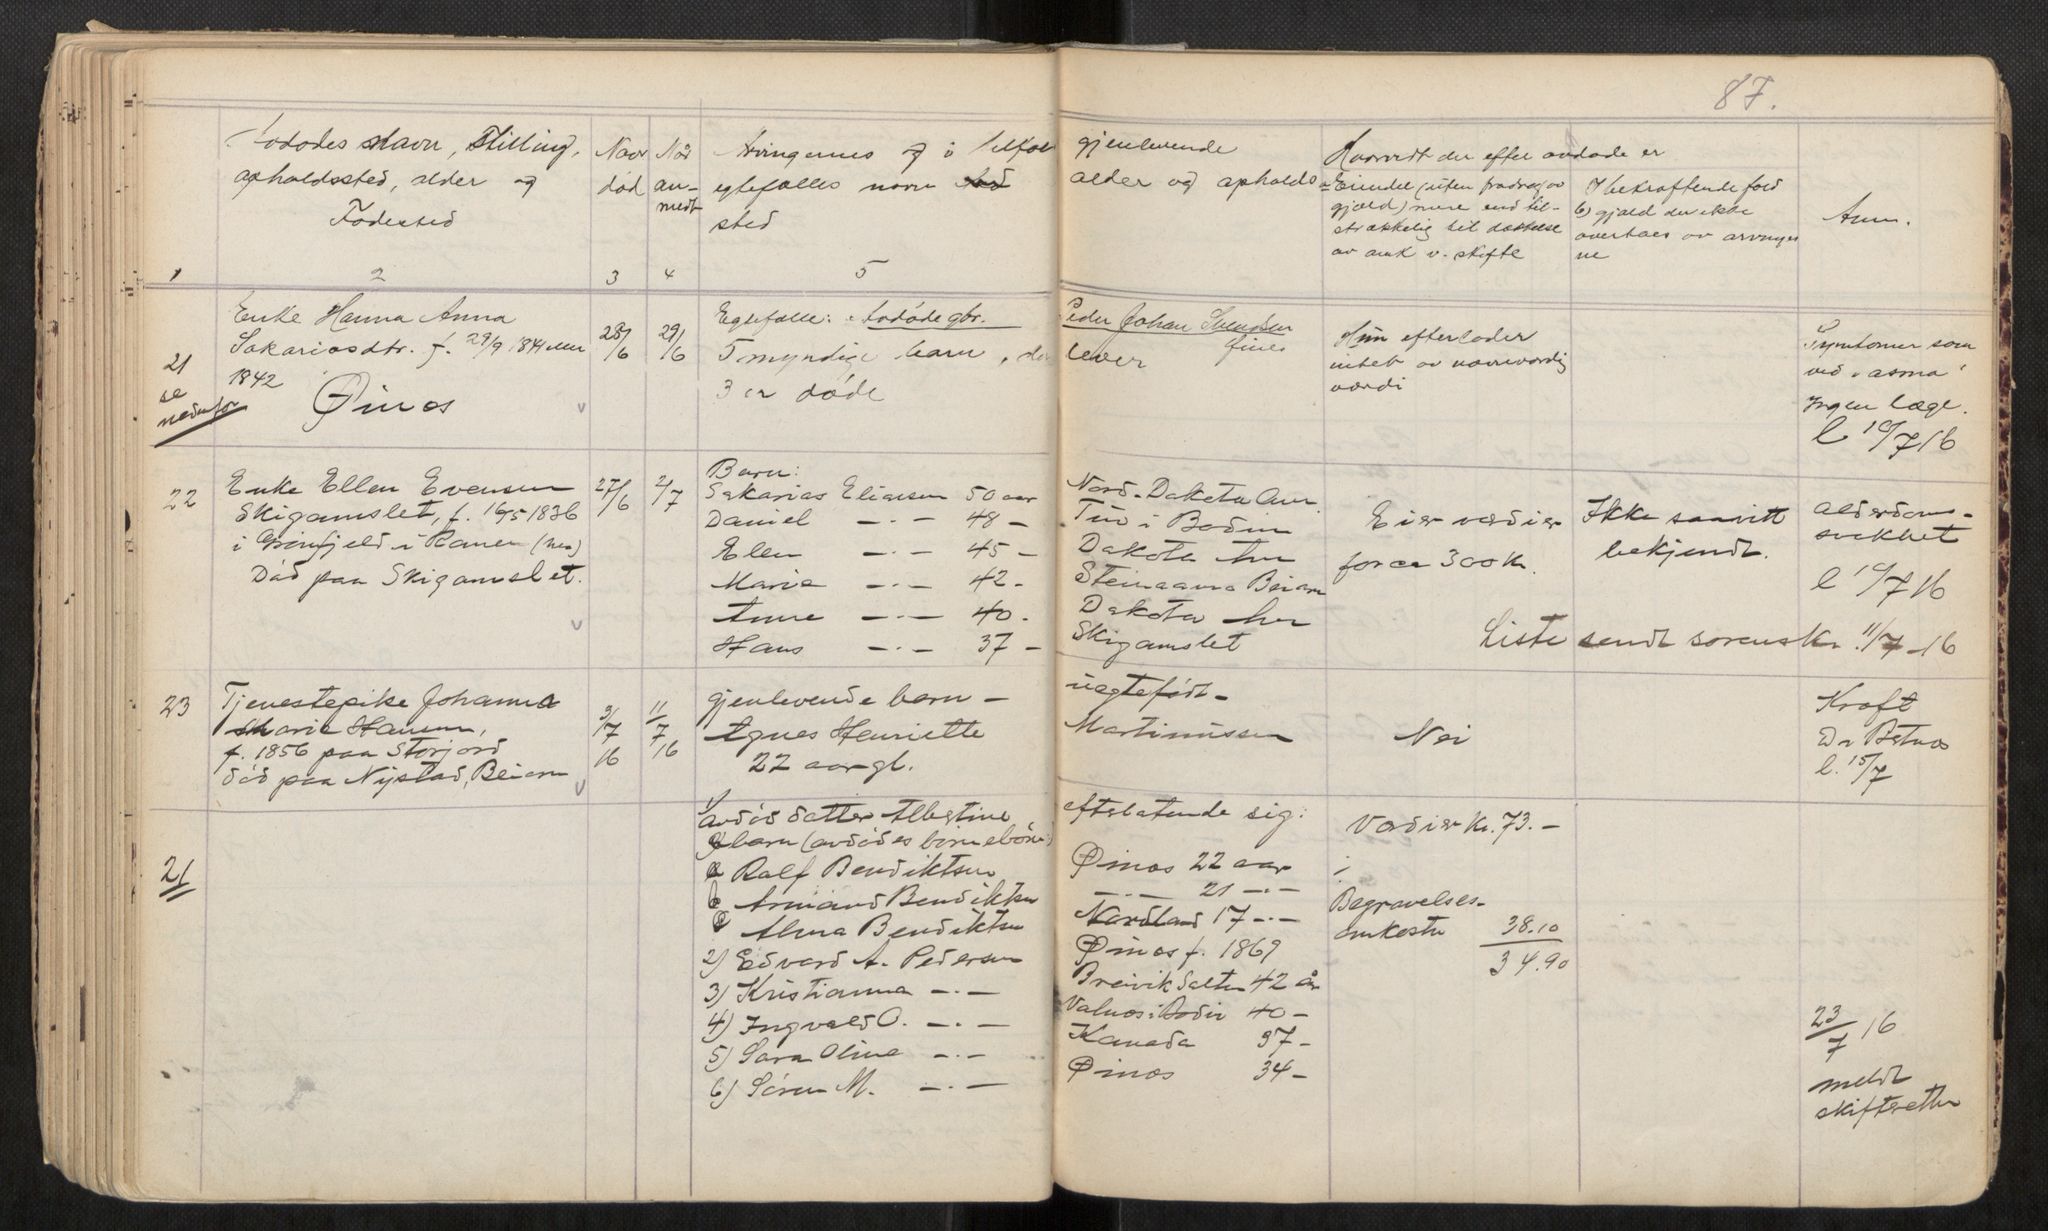 87.
Avdødes navn, stilling,
opholdssted, alder og
Fødested
Naar
død
Naar
an-
meldt
Arvingernes og i tilfælde
egtefælles navn
sted
gjenlevende
alder og opholds-
Hvorvidt der efter avdøde er
Eiendel (uten fradrag av
gjæld) mere end til-
strækkelig til dækkelse
av omk v. skifte
I bekræftende fald
b) gjæld der ikke
overtaes av arvinger
ne
Anm.
1 2 3 4 5
21
se
nedenfor
Enke Hanna Anna
Sakariasdtr. f. 29/9 1841 eller
1842
Øinæs
28/6
29/6
Egtefælle: Avdøde gbr.
5 myndige barn, der
3 er døde
Peder Johan Svendsen
Øines
lever
Hun efterlader
intet av nævneværdig
værdi
Symtomer som
ved "asma"
Ingen læge.
l 10/7 16
22
Enke Ellen Evensen
Skigamslet, f. 16/5 1836
i Grønfjeld i Ranen (Nes)
Død paa Skigamslet.
27/6
2/7
Barn:
Sakarias Eliassen 50 aar
Daniel —·— 48 —
Ellen —·— 45 —
Marie —·— 42 -
Anne —·— 40 .
Hans —·— 37 —
Nord-Dakota Am.
Tuv i Bodin
Dakota Am
Steinaamo Beiarn
Dakota Am
Skigamslet
Eier værdier
for ca 300 Kr.
Ikke saavitt
bekjendt.
alderdoms-
svakhet
l 10/7 16
Liste sendt sorensk. 11/7 -16
23
Tjenestepike Johanna
Marie Hansen,
f. 1856 paa Storjord
død paa Nystad, Beiarn
3/7
16
11/7
16
gjenlevende barn —
Agnes Henriette
22 aar gl.
uegtefødt —
Martinussen
Nei
Kræft
Dr Betnos
l. 15/7
21
1)
avdød datter Albertine
3 barn (avdødes børnebørn:)
a Ralf Bendiktsen
b Armand Bendiktsen
c Alma Bendiktsen
2) Edvard A. Pedersen
3) Kristianna —·—
4) Ingvald O. —·—
5) Sara Oline —·—
6) Søren M. —·—
efterlatende sig:
Øinæs 22 aar
—·— 21 —·—
Nordland 17 —·—
Øinæs f. 1869
Breivik Salten 42 år
Valnes i Bodin 40 —
Kanada 37 —
Øinæs 34 —
Værdier kr. 73. —
÷
Begravelses-
omkostn 38.10
34.90
23/7 16
meldt
skifteretten